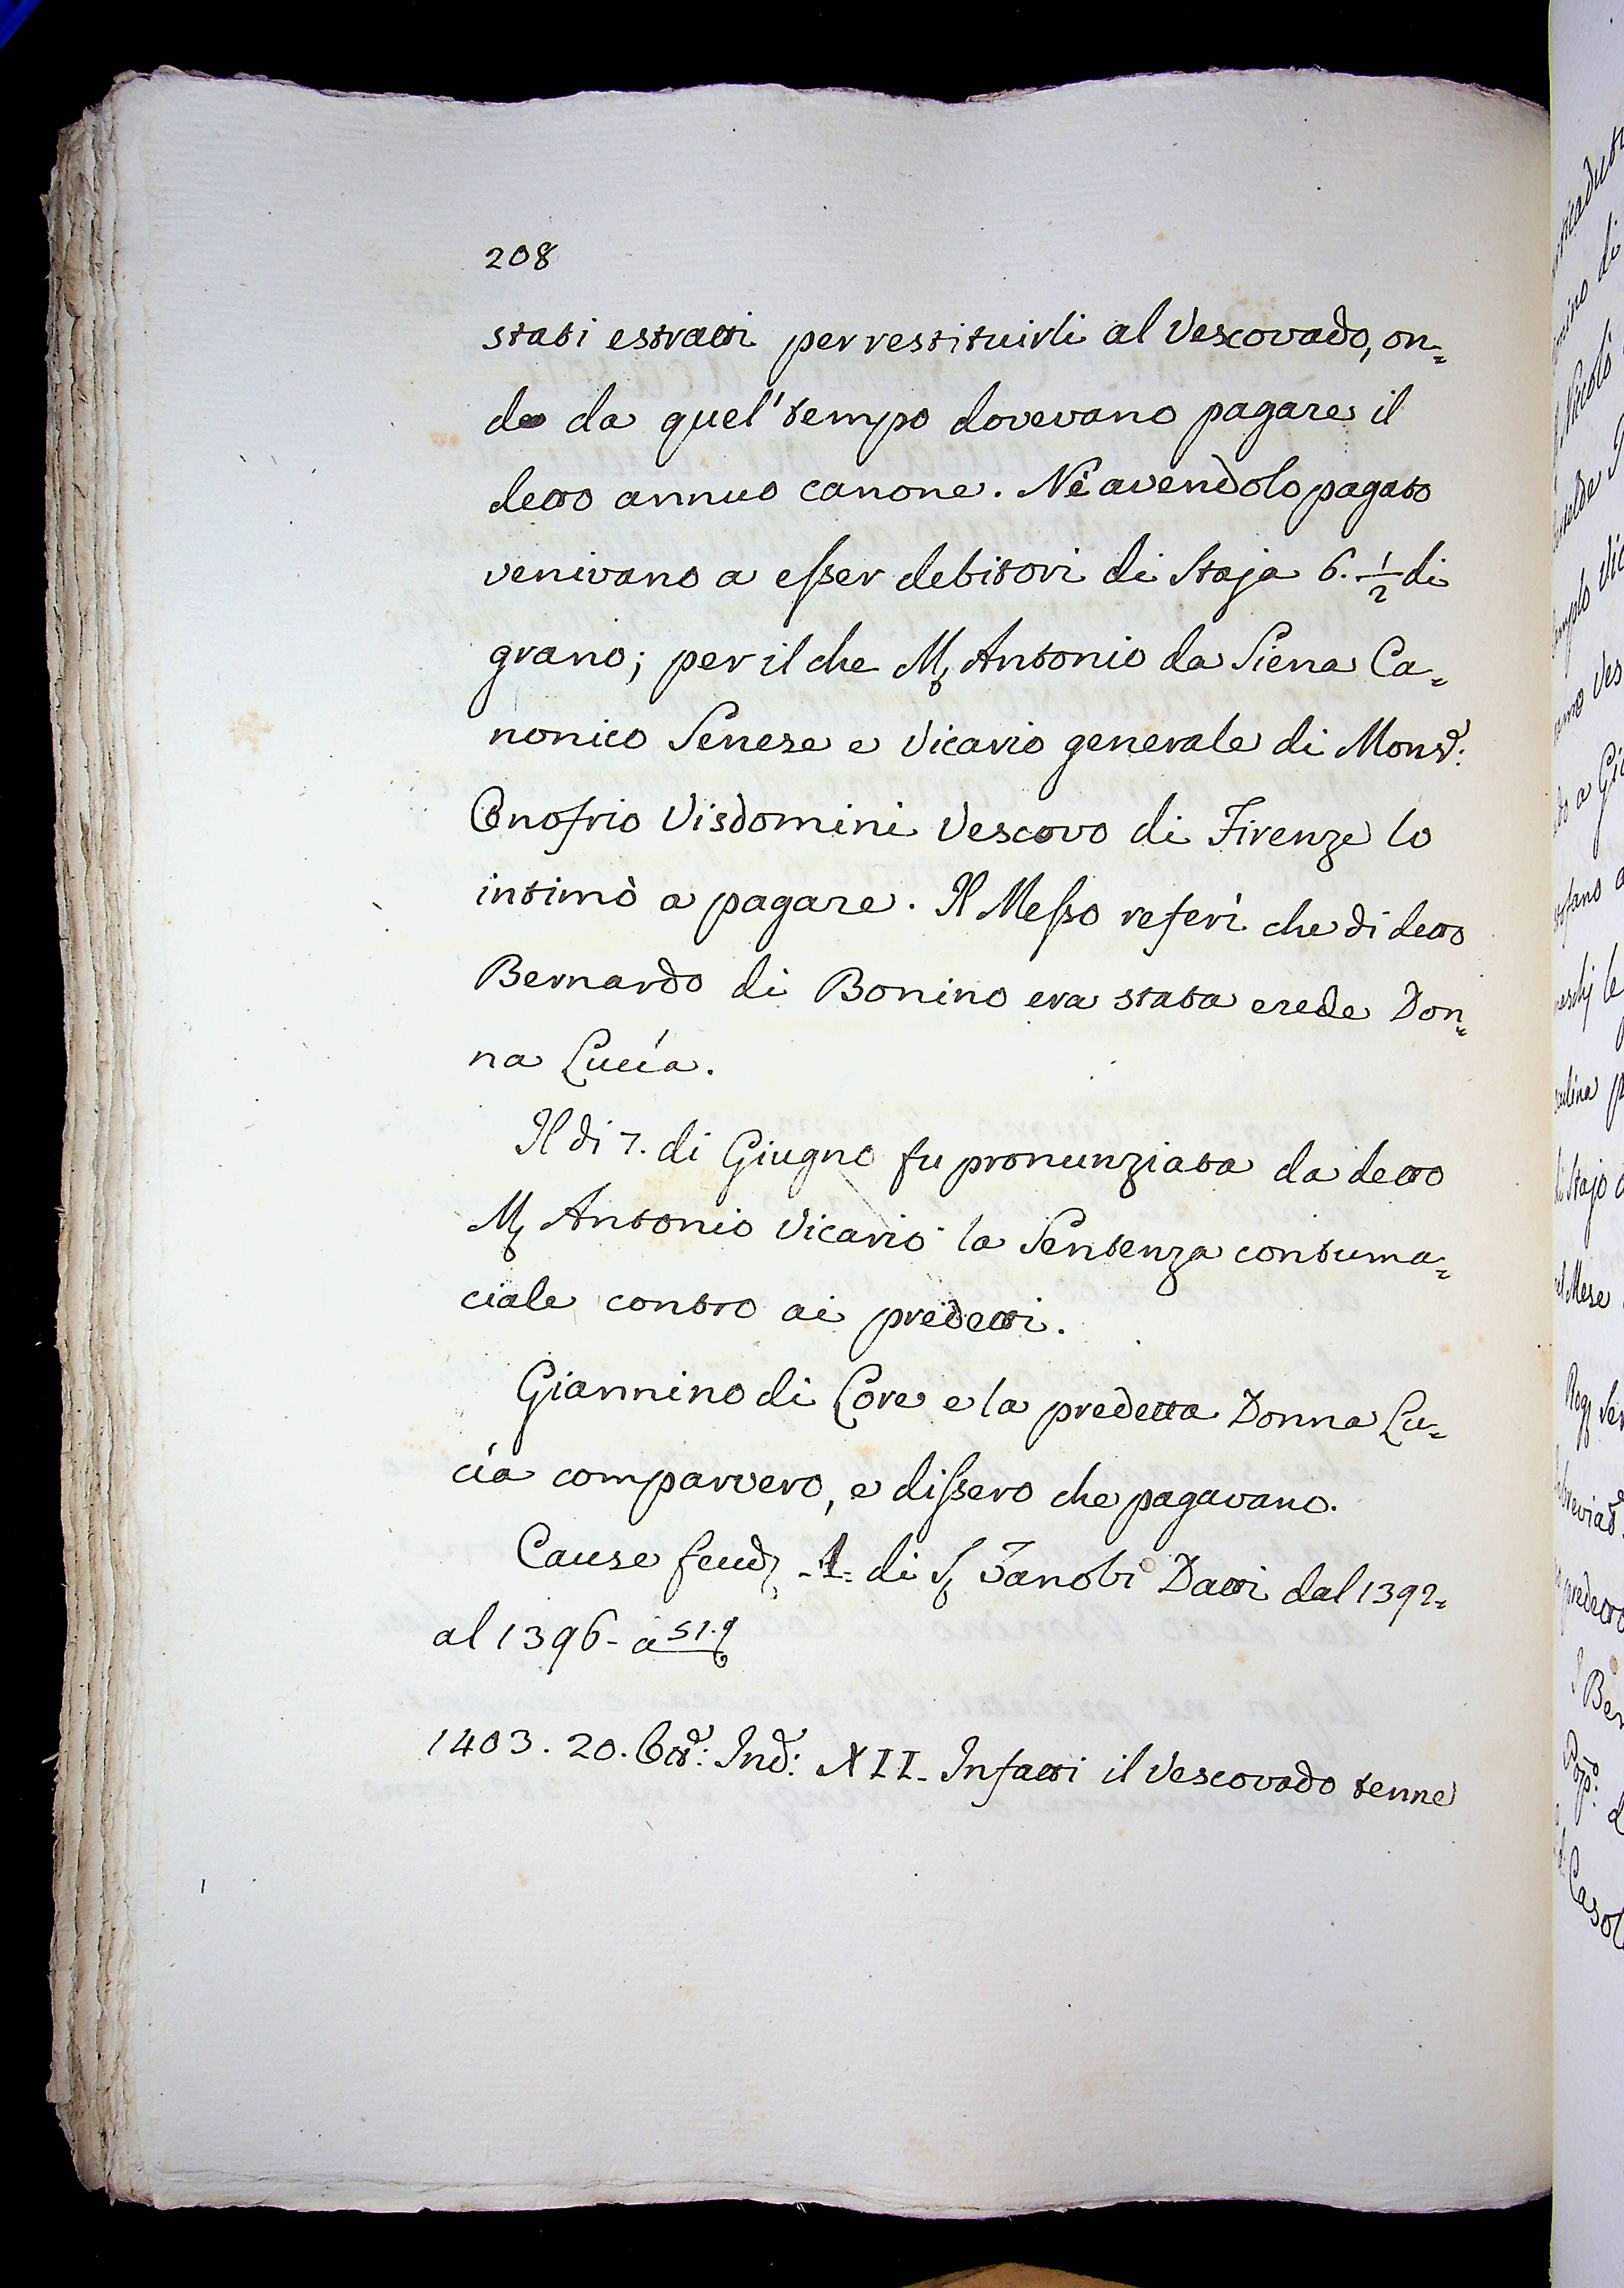 208
stati estratti per restituirli al Vescovado, on=
de da quel' tempo dovevano pagare il
detto annuo canone. Nè avendolo pagato
venivano a eſser debitori di Staja 6. 1/2 di
grano; per il che M. Antonio da Siena Ca=
nonico Senese e Vicario generale di Monsr:
Onofrio Visdomini Vescovo di Firenze lo
intimò a pagare. Il Meſso referì che di detto
Bernardo di Bonino era stata erede Don=
na Lucía.
Il di 7. di Giugno fu pronunziata da detto
M. Antonio Vicario la Sentenza contuma=
ciale contro ai predetti.
Giannino di Core e la predetta Donna Lu=
cía comparvero, e diſsero che pagavano.
Cause feud. 1. di S. Zanobi Datti dal 1392=
al 1396- a 51.
1403. 20. Ottr: Ind: XII- Infatti il Vescovado tenne